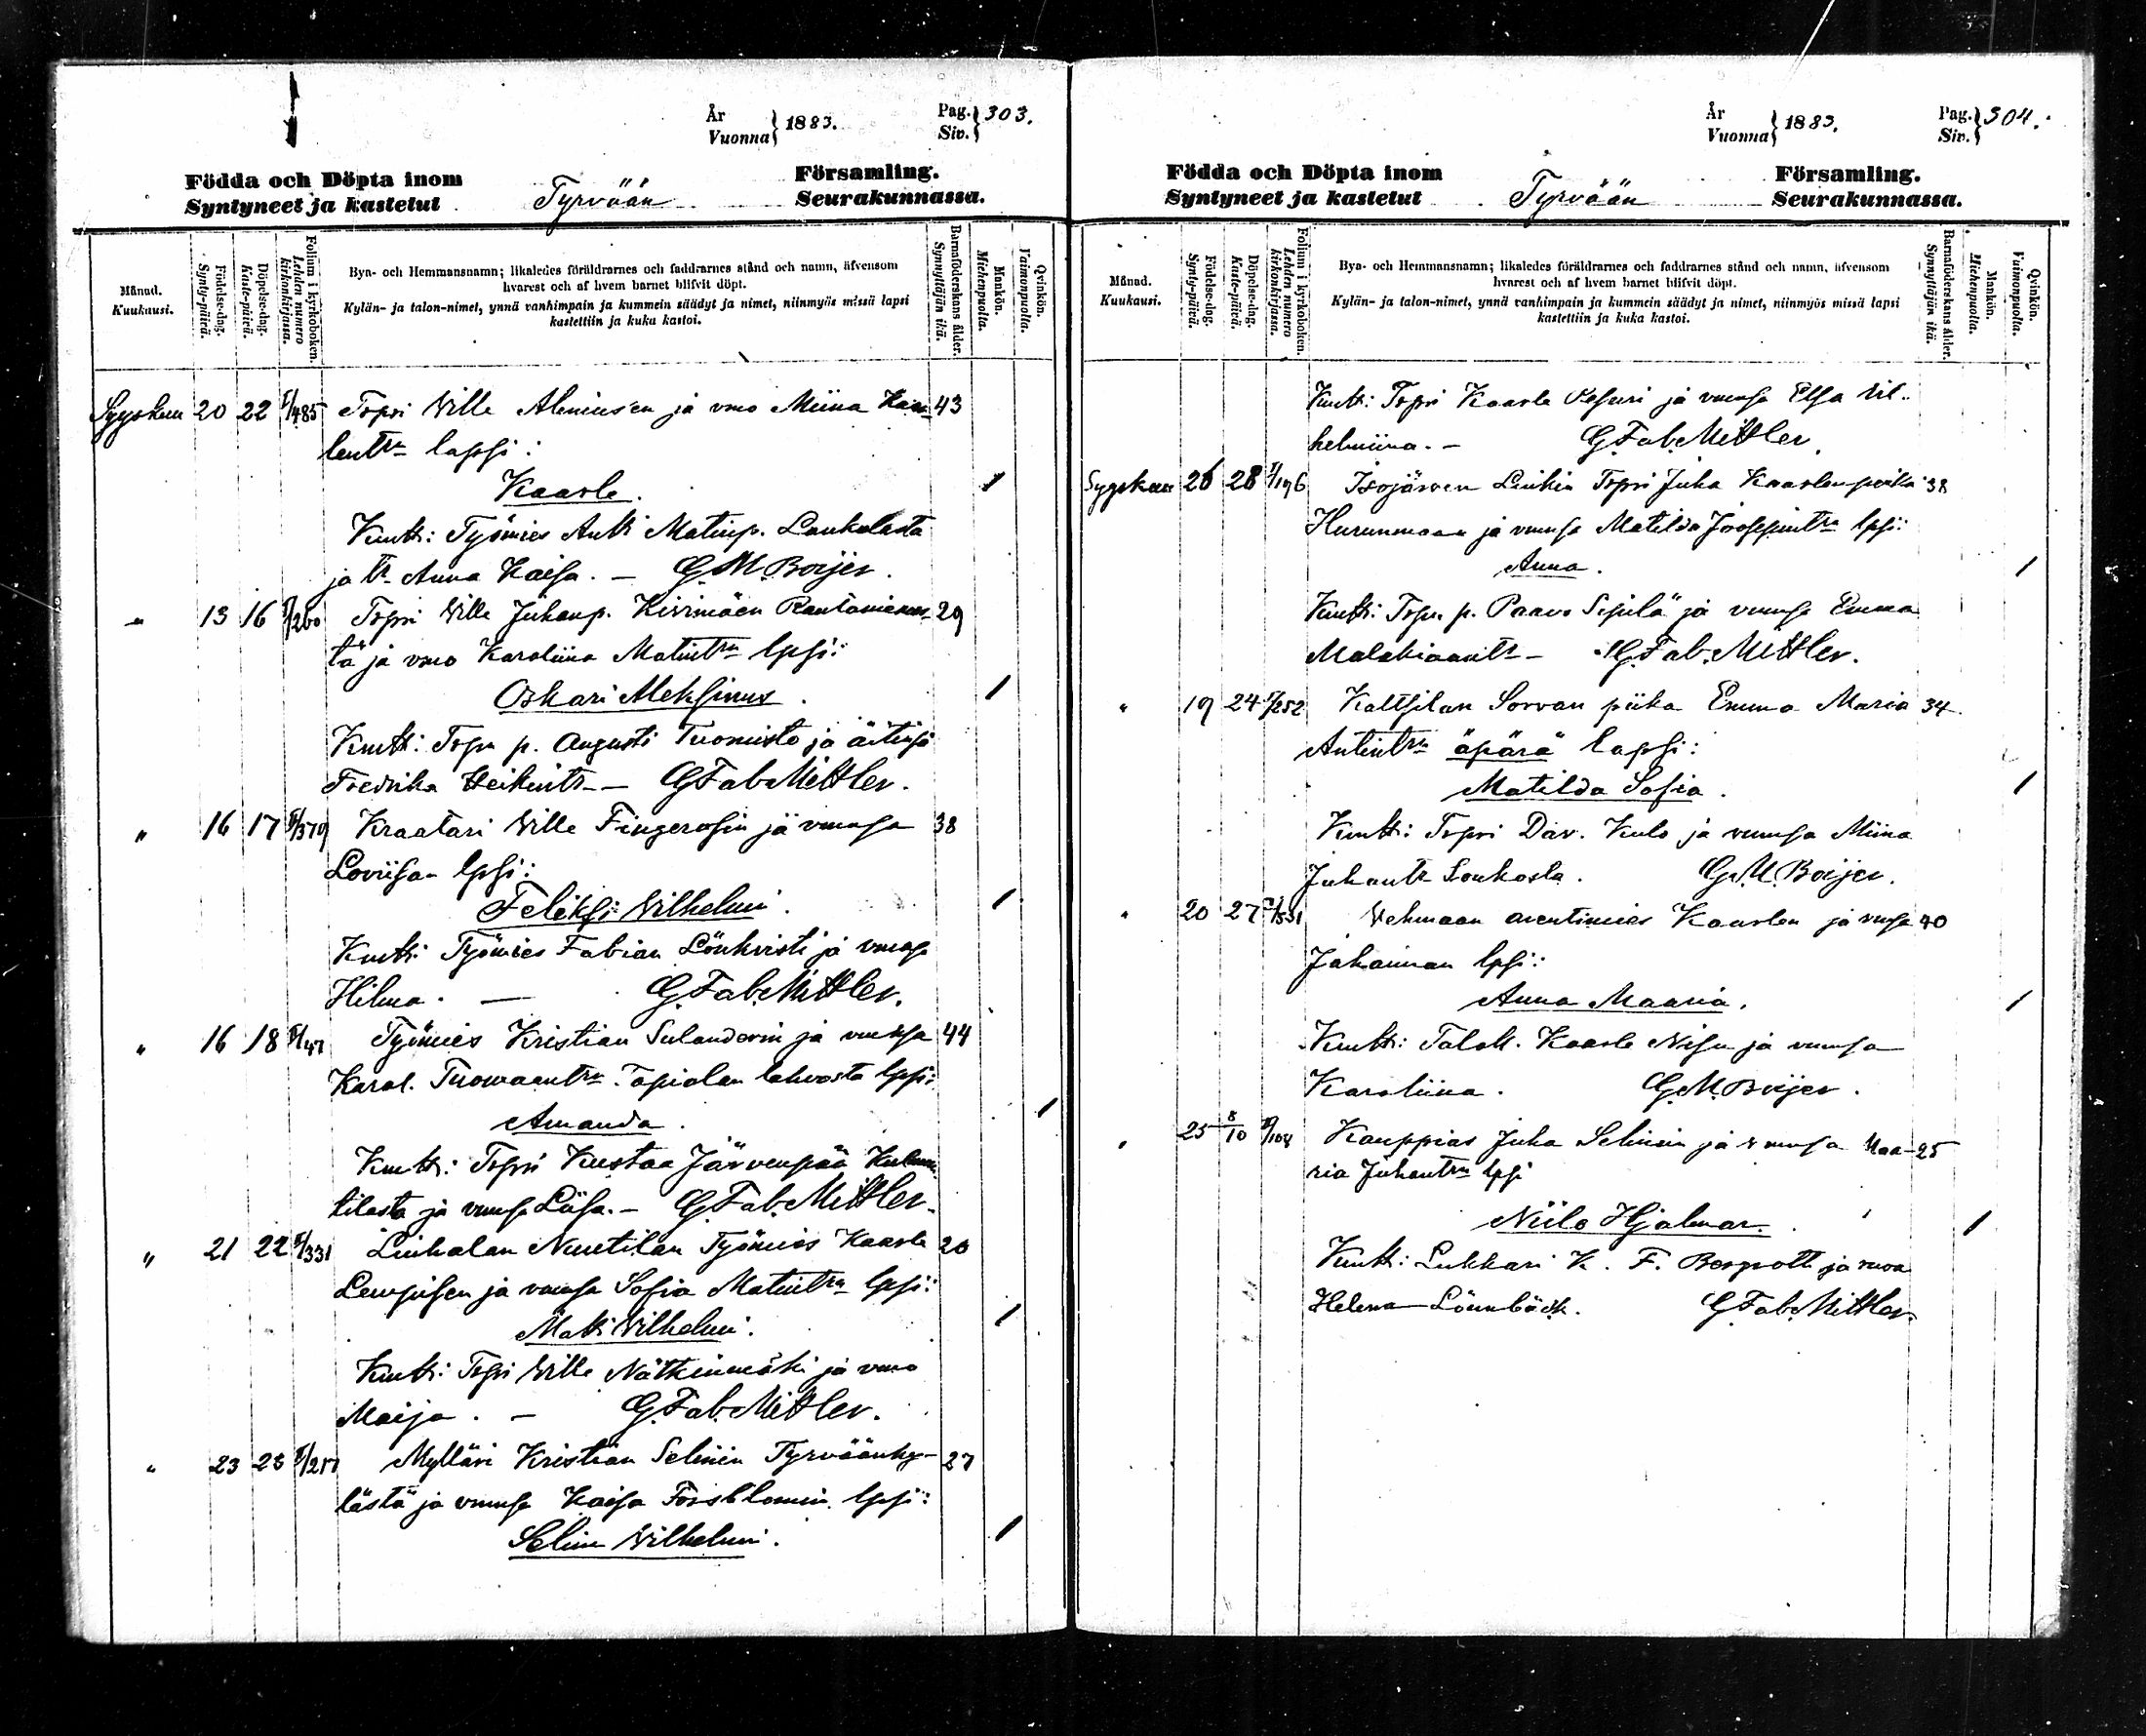 År
Vuonna } 1883.
Pag.
Siv. } 303.
Födda och Döpta inom
Syntyneet ja kastetut
Tyrvään
Församling.
Seurakunnassa.
Månad.
Kuukausi.
Födelse-dag.
Synty-päivä.
Döpelse-dag.
Kaste-päivä.
Folium i kyrkoboken.
Lehden numero
kirkonkirjassa.
Bya- och Hemmansnamn; likaledes föräldrarnes och faddrarnes stånd och namn, äfvensom
hvarest och af hvem barnet blifvit döpt.
Kylän- ja talon-nimet, ynnä vanhimpain ja kummein säädyt ja nimet, niinmyös missä lapsi
kastettiin ja kuka kastoi.
Barnaföderskans ålder.
Synnyttäjän ikä.
Mankön.
Miehenpuolta.
Qvinkön.
Vaimonpuolta.
Syyskuu 20 22 /485 Torpri Wille Aleniusen ja vmo Miina Kaar- 43
lentr lapsi:
Kaarle. 1
Kmt: Työmies Antti Matinp. Laukulasta
ja tr Anna Kaisa. — G M Boijer.
" 13 16 /260 Torpri Wille Juhanp. Kivimäen Rautaniemes- 29
tä ja vmo Karoliina Matintr lpsi:
Oskari Aleksinus. 1
Kmt: Torpn p. Augusti Tuomisto ja äitinsä
Fredrika Heikintr — G Fab. Mittler.
" 16 17 /379 Kraatari Wille Fingerosin ja vmonsa 38
Loviisan lpsi:
Feliksi Wilhelmi. 1
Kmt: Työmies Fabian Lönkvisti ja vmonsa
Hilma. — G. Fab. Mittler.
" 16 18 /47 Työmies Kristian Sulanderin ja vmonsa 44
Karol. Tuomaantr Tapiolan lahvosta lpsi:
Amanda. 1
Kmt: Torpri Kustaa Järvenpää Kulmu-
tilasta ja vmonsa Liisa. — G. Fab. Mittler.
" 21 22 /331 Liuhalan Nuutilan Työmies Kaarle 20
Lempisen ja vmonsa Sofia Matintr lpsi:
Matti Wilhelmi. 1
Kmt: Torpri Wille Nätkinmäki ja vmo
Maija. — G. Fab. Mittler.
" 23 23 /217 Mylläri Kristian Selinin Tyrväänky- 27
lästä ja vmonsa Kaisa Forsblomin lpsi:
Selim Wilhelmi. 1
År
Vuonna } 1883.
Pag.
Siv. } 304.
Födda och Döpta inom
Syntyneet ja kastetut
Tyrvään
Församling.
Seurakunnassa.
Månad.
Kuukausi.
Födelse-dag.
Synty-päivä.
Döpelse-dag.
Kaste-päivä.
Folium i kyrkoboken.
Lehden numero
kirkonkirjassa.
Bya- och Hemmansnamn; likaledes föräldrarnes och faddrarnes stånd och namn, äfvensom
hvarest och af hvem barnet blifvit döpt.
Kylän- ja talon-nimet, ynnä vanhimpain ja kummein säädyt ja nimet, niinmyös missä lapsi
kastettiin ja kuka kastoi.
Barnaföderskans ålder.
Synnyttäjän ikä.
Mankön.
Miehenpuolta.
Qvinkön.
Vaimonpuolta.
Kmt: Torpri Kaarle ja vmonsa Elsa Vil-
helmiina. — G. Fab. Mittler.
Syyskuu 26 28 /196 Isojärven Liukin Torpri Juha Kaarlenpoika 38
Hurunmaan ja vmonsa Matilda Joosepintr lpsi:
Anna. 1
Kmt: Torpn. p. Paavo Sipilä ja vmonsa Emma
Malakiaantr — G. Fab. Mittler.
" 19 24 /252 Kaltsilan Sorvan piika Emma Maria 34
Antintr äpärä lapsi:
Matilda Sofia. 1
Kmt: Torpri Dav. Kulo ja vmonsa Miina
Juhantr Sonkosta. G. M. Boijer.
" 20 27 /331 Vehmaan arentimies Kaarlen ja vmsa 40
Johannan lpsi:
Anna Maaria. 1
Kmt: Taloll. Kaarle ja vmonsa
Karoliina. G. M. Boijer.
" 25 8/10 /108 Kauppias Juha Selinin ja vmonsa Maa- 25
ria Juhantr lpsi
Niilo Hjalmar. 1
Kmt: Lukkari K. F. Bergroth ja rwva
Helena Lönnbäck. G. Fab. Mittler.